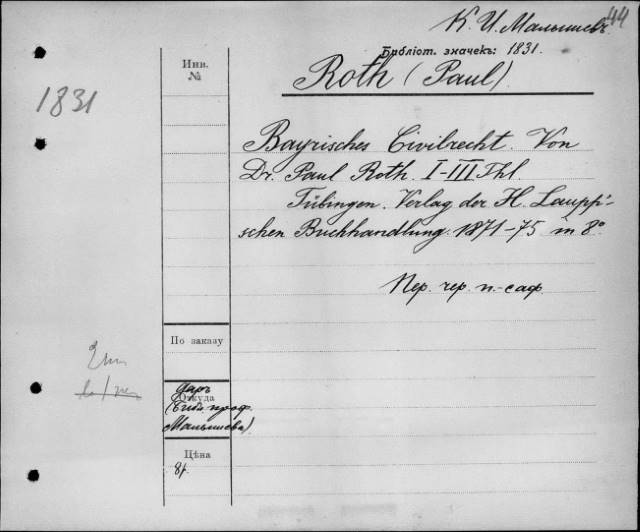 44
К. И. Малышевъ
Библіот. значекъ: 1831.
Инв.
№
Roth (Paul).
1831
Bayrisches Civilrecht. Von
Dr. Paul Roth. I-III Thl.
Tübingen. Verlag der H. Laupp'-
schen Buchhandlung. 1871-75 in 8°
Пер. чер. п.-саф.
По заказу
Даръ
Откуда
(библ. проф.
Малышева)
Цѣна
8р.